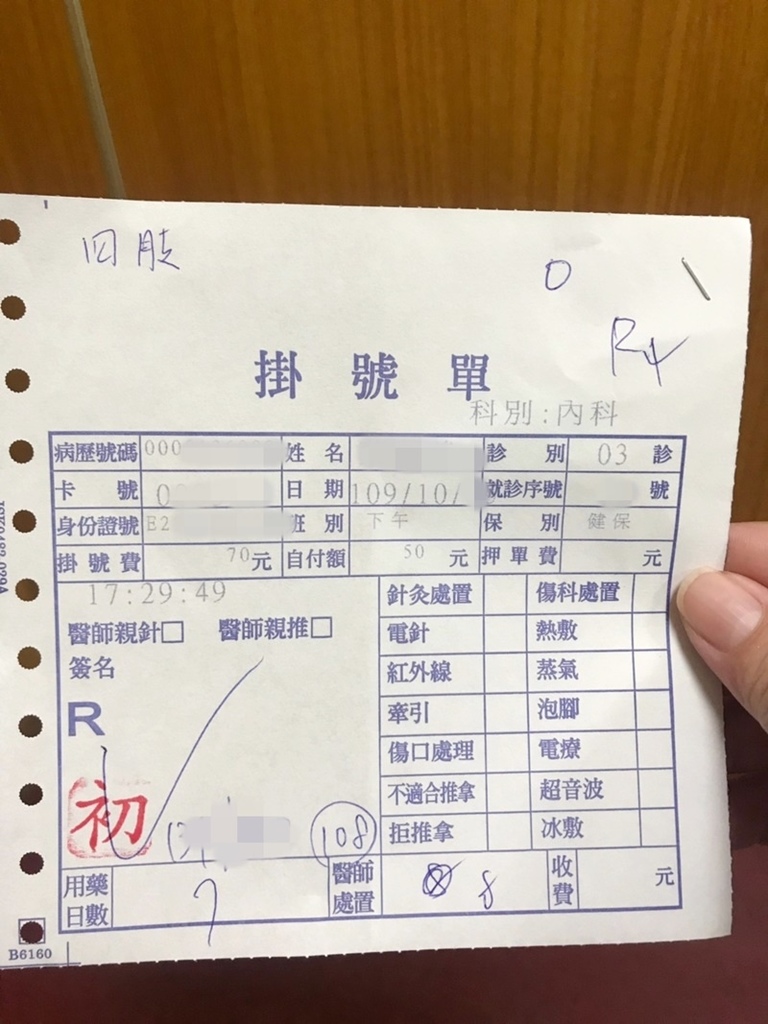 四肢
O
Rx
掛號單
科別:內科
病歷號碼 000 姓名 診別 03 診
卡號 0 日期 109/10/ 就診序號 號
身份證號 E2 班別 下午 保別 健保
掛號費 70元 自付額 50元 押單費 元
17:29:49
醫師親針□ 醫師親推□
簽名
R
初
108
針灸處置 傷科處置
電針 熱敷
紅外線 蒸氣
牽引 泡腳
傷口處理 電療
不適合推拿 超音波
拒推拿 冰敷
用藥日數 7 醫師處置 8 收費 元
B6160